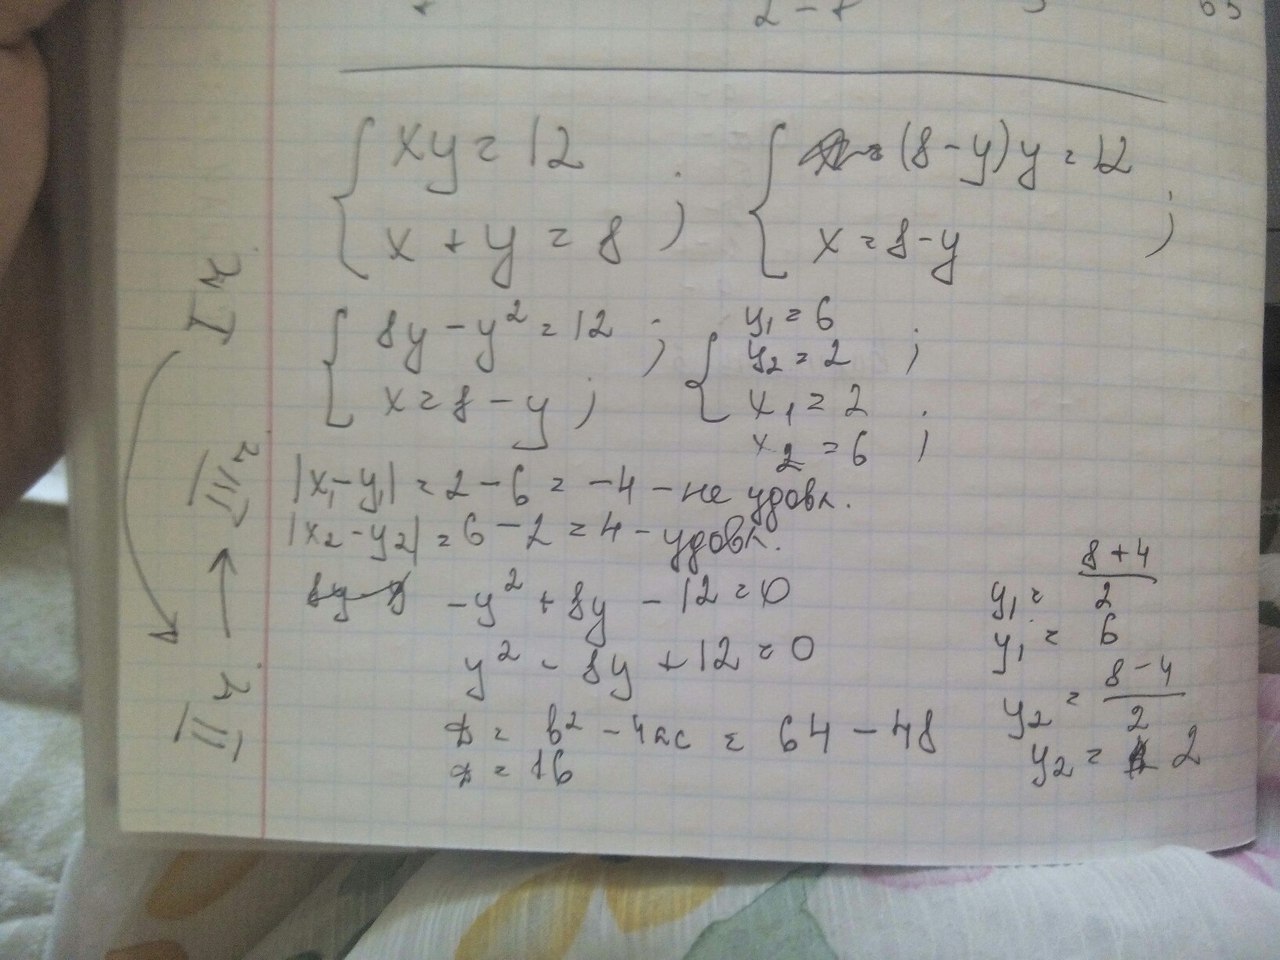 { xy = 12 ; { (8 - y)y = 12 ;
x + y = 8 x = 8 - y
{ 8y - y² = 12 ; { y₁ = 6
x = 8 - y ; y₂ = 2 ;
x₁ = 2
x₂ = 6 ;
|x₁ - y₁| = 2 - 6 = -4 - не удовл.
|x₂ - y₂| = 6 - 2 = 4 - удовл.
-y² + 8y - 12 = 0
y² - 8y + 12 = 0
D = b² - 4ac = 64 - 48
D = 16
y₁ = (8 + 4)/2
y₁ = 6
y₂ = (8 - 4)/2
y₂ = 2
I ч.
III ч
II ч.